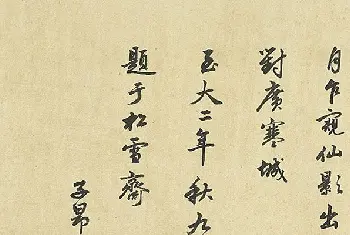 月乍窺仙影出
對廣寒城
至大二年秋九
題于松雪齋
子昂